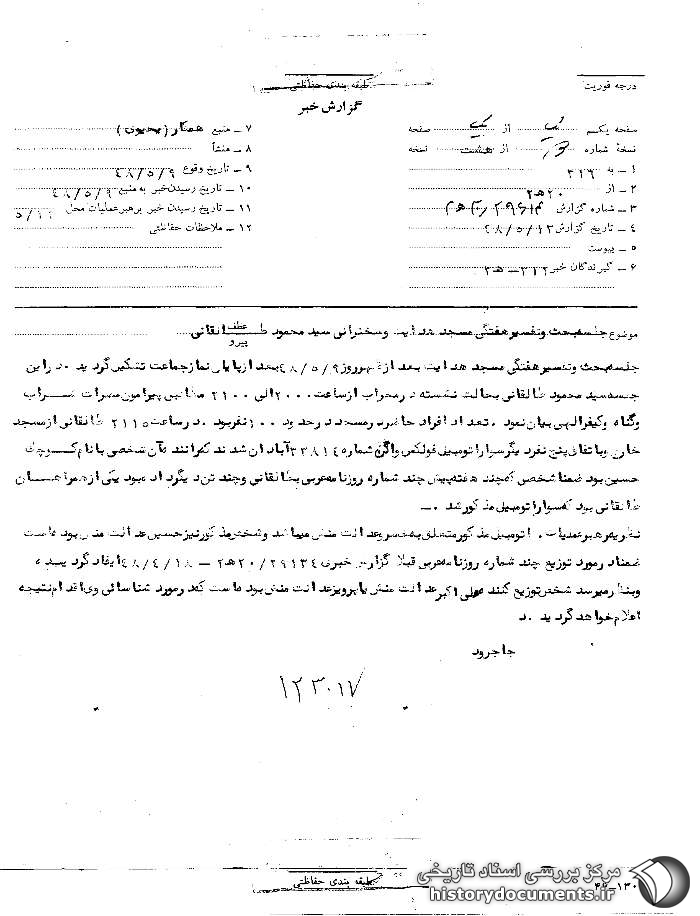 درجه فوریت:
طبقه بندی حفاظتی
گزارش خبر
صفحه یکم از یک صفحه
نسخه شماره از هشت نسخه
۱ ـ به ۳۱۶
۲ ـ از ۲۰هـ۲
۳ ـ شماره گزارش
۴ ـ تاریخ گزارش ۴۸/۵/۱۲
۵ ـ پیوست
۶ ـ گیرندگان خبر ۳۱۲ـهـ۳
۷ ـ منبع همکار (یحیوی)
۸ ـ منشأ
۹ ـ تاریخ وقوع ۴۸/۵/۹
۱۰ ـ تاریخ رسیدن خبر به منبع ۴۸/۵/۹
۱۱ ـ تاریخ رسیدن خبر برهبر عملیات محل
۱۲ ـ ملاحظات حفاظتی
موضوع جلسه بحث و تفسیر هفتگی مسجد هدایت و سخنرانی سید محمود طالقانی
عطف
پیرو
جلسه بحث و تفسیر هفتگی مسجد هدایت بعد از ظهر روز ۴۸/۵/۹ بعد از پایان نماز جماعت تشکیل گردید . در این
جلسه سید محمود طالقانی بحالت نشسته در محراب از ساعت ۲۰۰۰ الی ۲۱۰۰ مطالبی پیرامون مضرات شراب
و گناه و کیفر الهی بیان نمود . تعداد افراد حاضر در مسجد در حدود ۱۰۰ نفر بود . در ساعت ۲۱۱۵ طالقانی از مسجد
خارج و باتفاق پنج نفر دیگر سوار اتومبیل فولکس واگن شماره ۳۳۸۱۴ آبادان شدند که راننده آن شخصی بنام کوچک
حسین بود ضمنا شخصی که چند هفته پیش چند شماره روزنامه عربی بطالقانی و چند تن دیگر داده بود یکی از همراهان
طالقانی بود که سوار اتومبیل مذکور شد .
نظریه رهبر عملیات . اتومبیل مذکور متعلق به خسرو عدالت منش میباشد و شخص مذکور نیز حسین عدالت منش بوده است
ضمنا در مورد توزیع چند شماره روزنامه عربی قبلا گزارش خبری ۲۹۱۳۴/۲۰هـ۲ ـ ۴۸/۴/۱۸ ایفاد گردیده
و بنظر میرسد شخص توزیع کننده علی اکبر عدالت منش یا پرویز عدالت منش بوده است که در مورد شناسائی وی اقدام نتیجه
اعلام خواهد گردید . د
جاجرود
۱۲۳۰۱۷
طبقه بندی حفاظتی
مرکز بررسی اسناد تاریخی
historydocuments.ir